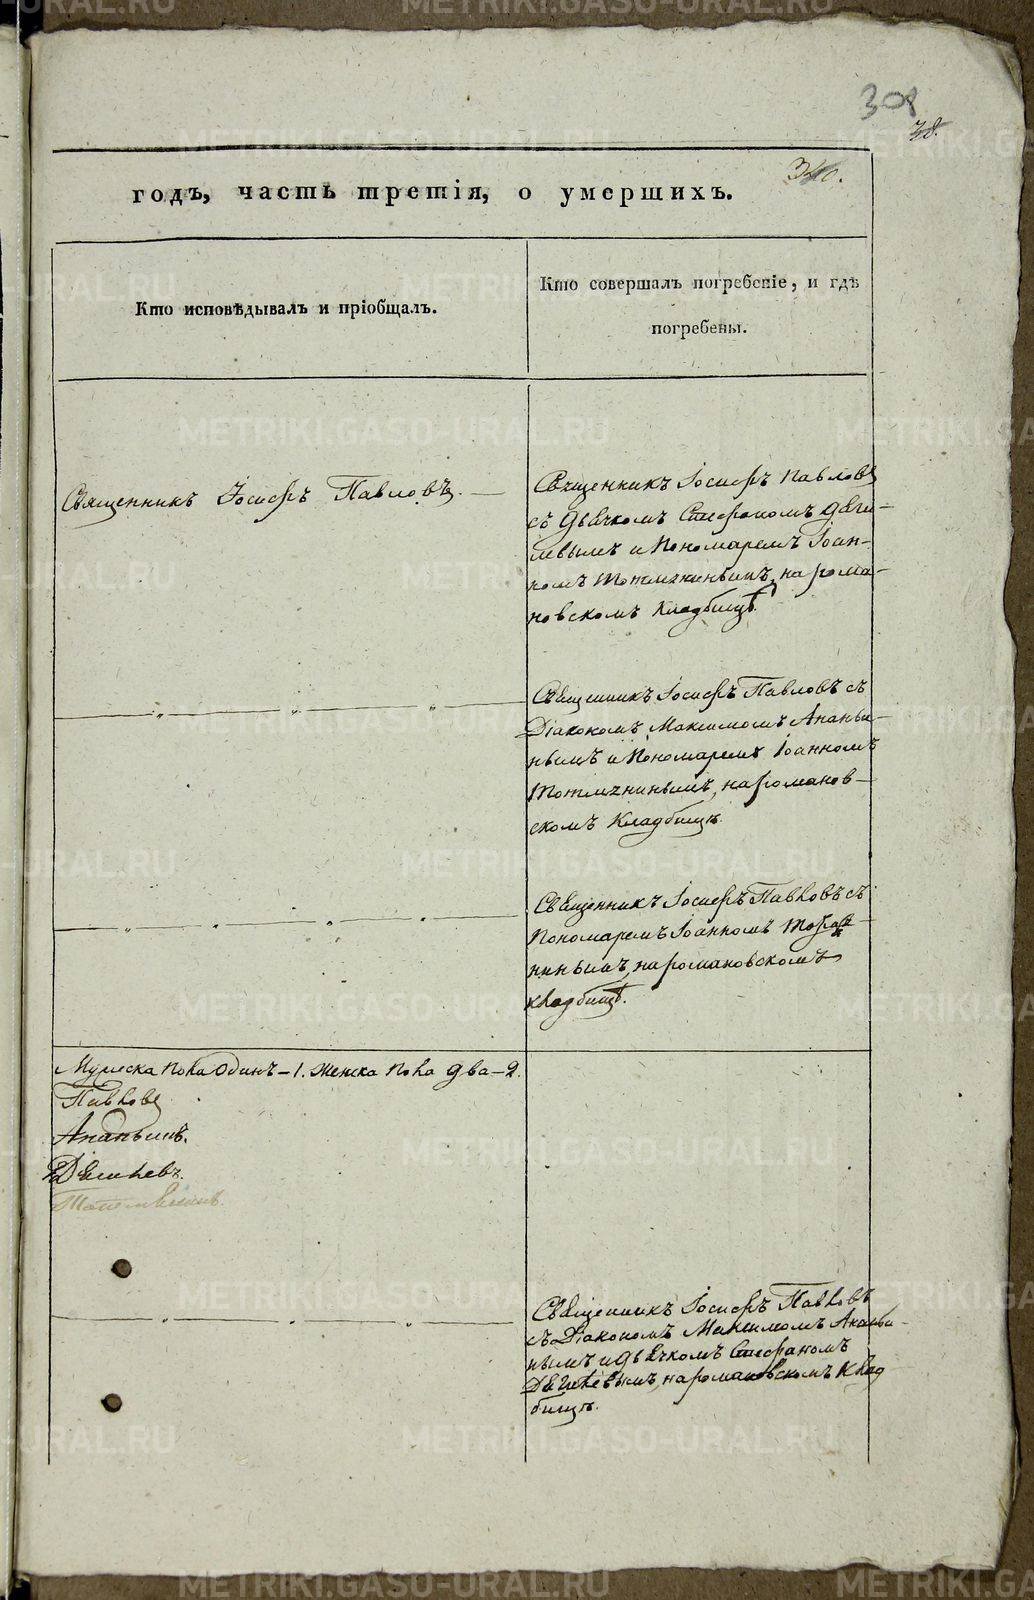 308
38.
340.
годъ, часть третія, о умершихъ.
Кто исповѣдывалъ и пріобщалъ.
Кто совершалъ погребеніе, и гдѣ
погребены.
Священникъ Іосифъ Павловъ.
Священникъ Іосифъ Павловъ
съ Дьячкомъ Стефаномъ Дяги-
левымъ и Пономаремъ Іоан-
номъ Тотмянинымъ, на рома-
новскомъ Кладбищѣ.
Священникъ Іосифъ Павловъ съ
Діакономъ Максимомъ Ананьи-
нымъ и Пономаремъ Іоанномъ
Тотмянинымъ, на романов-
скомъ Кладбищѣ.
Священникъ Іосифъ Павловъ съ
Пономаремъ Іоанномъ
нинымъ, на романовскомъ
кладбищѣ.
Мужеска пола Одинъ – 1. Женска пола два – 2.
Павловъ
Ананьинъ.
Дягилевъ.
Священникъ Іосифъ Павловъ
съ Діакономъ Максимомъ Ананьи-
нымъ и дьячкомъ Стефаномъ
Дягилевымъ, на романовскомъ Клад
бищѣ.
METRIKI.GASO-URAL.RU